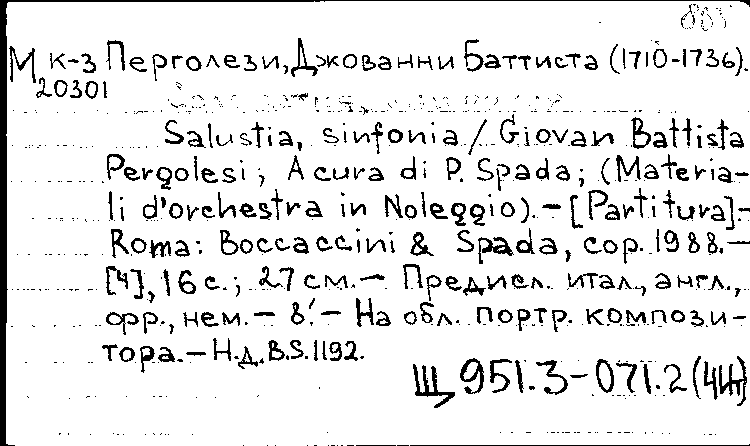 М к-з Перголези, Джованни Баттиста (1710-1736).
20301
Salustia, sinfonia / Giovan Battista
Pergolesi; A cura di P. Spada; (Materia-
li d'orchestra in Noleggio). — [Partitura].-
Roma: Boccaccini & Spada, cop. 1988. —
[4], 16 с.; 27 см. — Предисл. итал., англ.,
фр., нем. — 8! — На обл. портр. компози-
тора. — Н.д. B.S. 1192.
Щ 951.3-071.2 (4Ит)